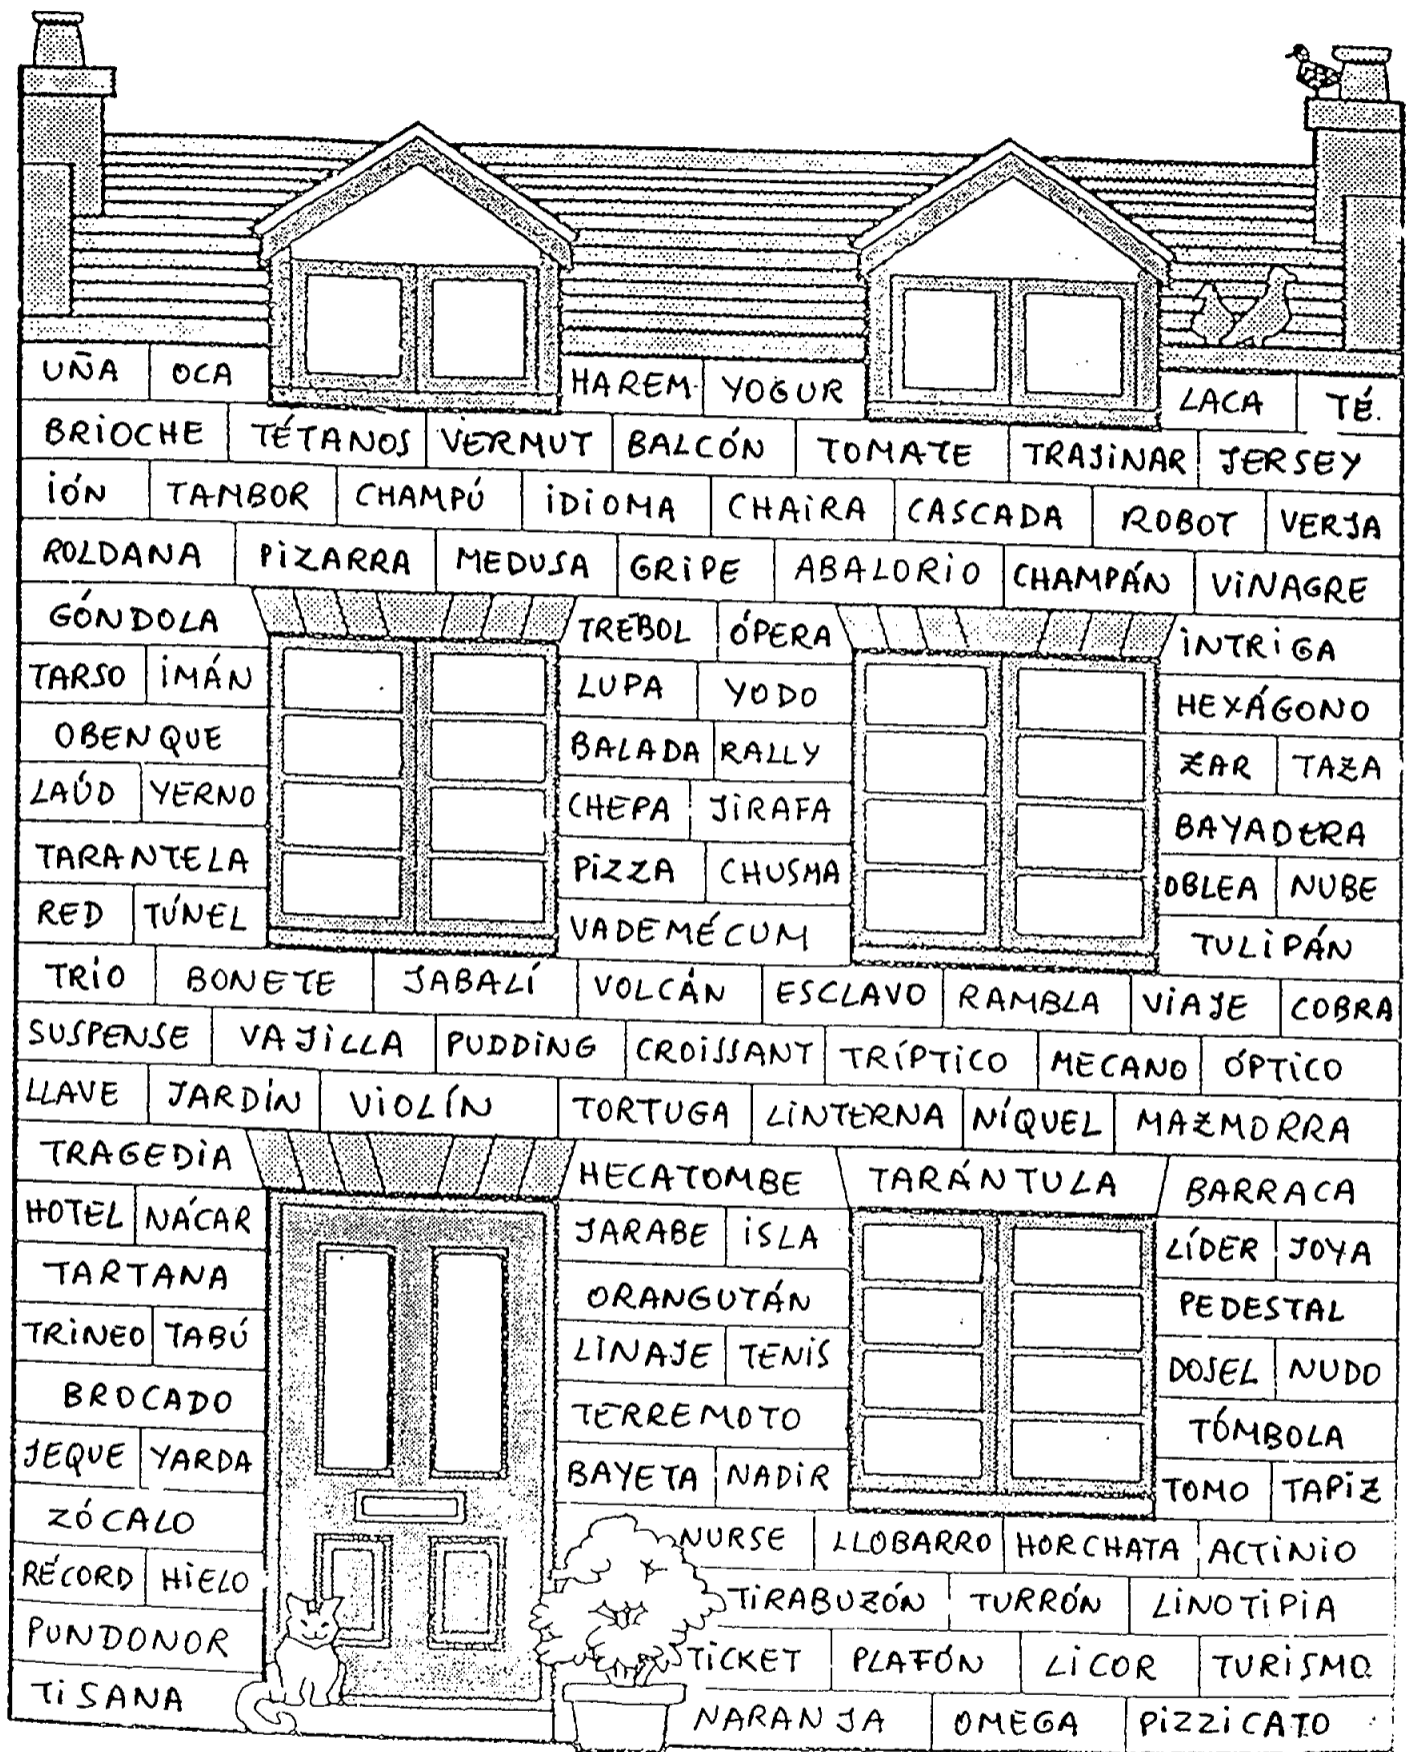 UÑA OCA HAREM YOGUR LACA TÉ.
BRIOCHE TÉTANOS VERMUT BALCÓN TOMATE TRAJINAR JERSEY
IÓN TAMBOR CHAMPÚ IDIOMA CHAIRA CASCADA ROBOT VERJA
ROLDANA PIZARRA MEDUSA GRIPE ABALORIO CHAMPÁN VINAGRE
GÓNDOLA TRÉBOL ÓPERA INTRIGA
TARSO IMÁN LUPA YODO HEXÁGONO
OBENQUE BALADA RALLY ZAR TAZA
LAÚD YERNO CHEPA JIRAFA BAYADERA
TARANTELA PIZZA CHUSMA OBLEA NUBE
RED TÚNEL VADEMÉCUM TULIPÁN
TRÍO BONETE JABALÍ VOLCÁN ESCLAVO RAMBLA VIAJE COBRA
SUSPENSE VAJILLA PUDDING CROISSANT TRÍPTICO MECANO ÓPTICO
LLAVE JARDÍN VIOLÍN TORTUGA LINTERNA NÍQUEL MAZMORRA
TRAGEDIA HECATOMBE TARÁNTULA BARRACA
HOTEL NÁCAR JARABE ISLA LÍDER JOYA
TARTANA ORANGUTÁN PEDESTAL
TRINEO TABÚ LINAJE TENIS DOSEL NUDO
BROCADO TERREMOTO TÓMBOLA
JEQUE YARDA BAYETA NADIR TOMO TAPIZ
ZÓCALO NURSE LLOBARRO HORCHATA ACTINIO
RÉCORD HIELO TIRABUZÓN TURRÓN LINOTIPIA
PUNDONOR TICKET PLAFÓN LICOR TURISMO
TISANA NARANJA OMEGA PIZZICATO